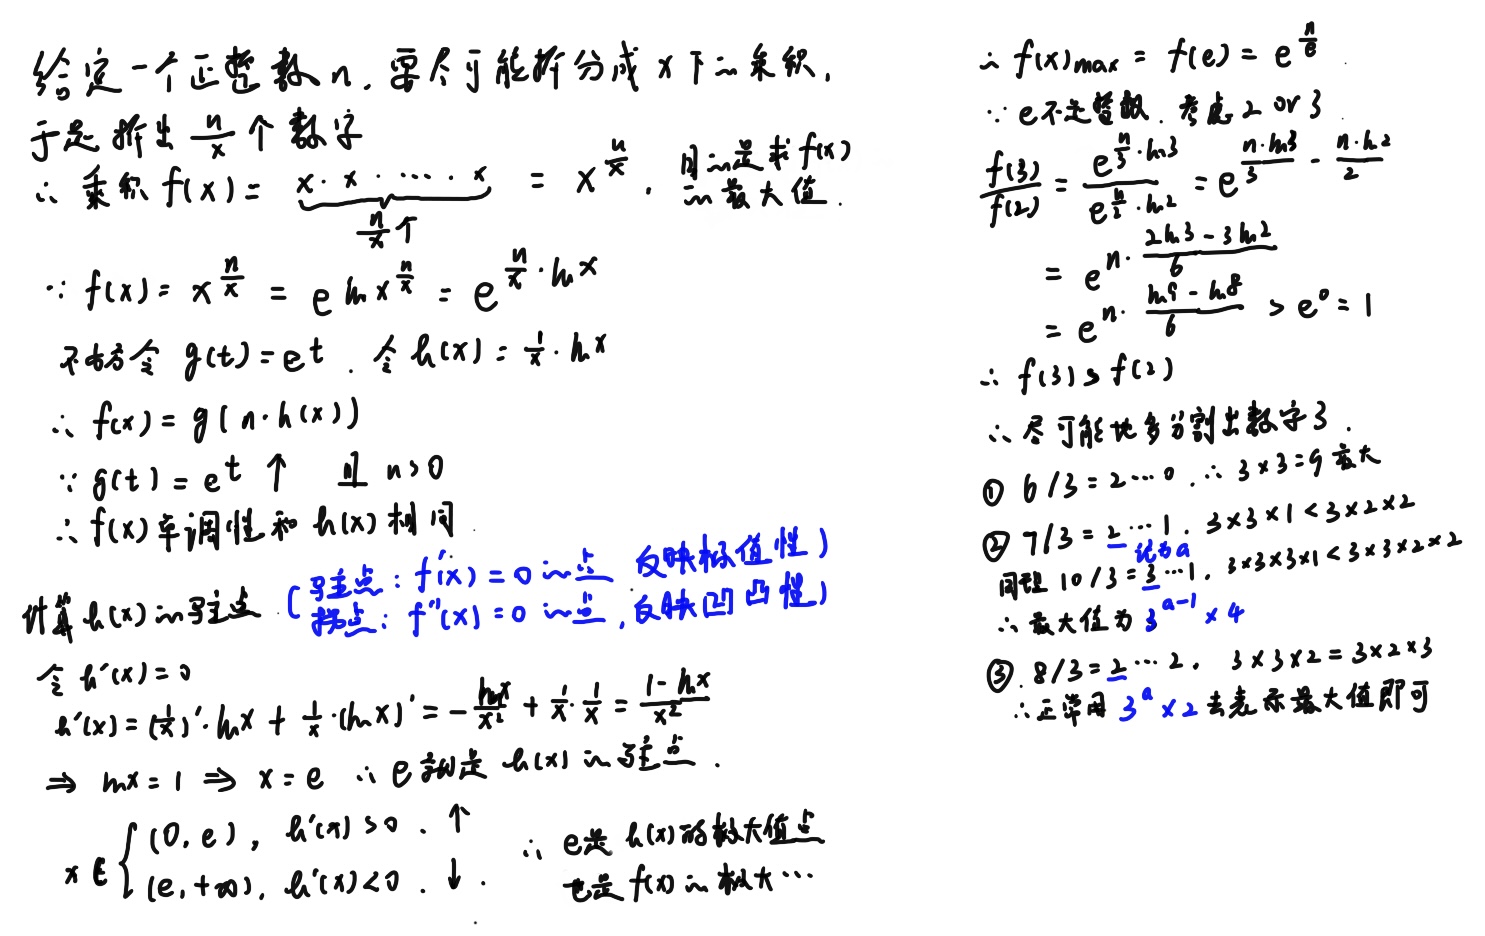 给定一个正整数n,要尽可能拆分成x下的乘积,
于是拆出 n/x 个数字
∴ 乘积 f(x) = x·x·····x (n/x个) = x^(n/x), 问的是求f(x)的最大值.
∵ f(x) = x^(n/x) = e^(ln x^(n/x)) = e^(n/x · ln x)
不妨令 g(t) = e^t. 令 h(x) = 1/x · ln x
∴ f(x) = g(n·h(x))
∵ g(t) = e^t ↑ 且 n>0
∴ f(x)单调性和 h(x)相同.
计算h(x)的驻点
(驻点: f'(x) = 0 的点 反映极值性)
(拐点: f''(x) = 0 的点, 反映凹凸性)
令 h'(x) = 0
h'(x) = (1/x)'·ln x + 1/x·(ln x)' = -ln x/x² + 1/x·1/x = (1-ln x)/x²
⇒ ln x = 1 ⇒ x = e ∴ e就是 h(x)的驻点.
x ∈ { (0, e), h'(x) > 0. ↑
(e, +∞), h'(x) < 0. ↓.
∴ e是 h(x)的极大值点
也是 f(x)的极大…
∴ f(x)max = f(e) = e^(n/e)
∵ e不是整数. 考虑 2 or 3
f(3)/f(2) = e^(n/3·ln3) / e^(n/2·ln2) = e^(n·ln3/3 - n·ln2/2)
= e^(n·(2ln3-3ln2)/6)
= e^(n·(ln9-ln8)/6) > e^0 = 1
∴ f(3) > f(2)
∴ 尽可能地多分割出数字3.
① 6/3 = 2…0. ∴ 3×3=9最大
② 7/3 = 2…1. 3×3×1 < 3×2×2
记为a
同理 10/3 = 3…1, 3×3×3×1 < 3×3×2×2
∴ 最大值为 3^(a-1) × 4
③ 8/3 = 2…2. 3×3×2 = 3×2×3
∴ 正常用 3^a × 2 去表示最大值即可